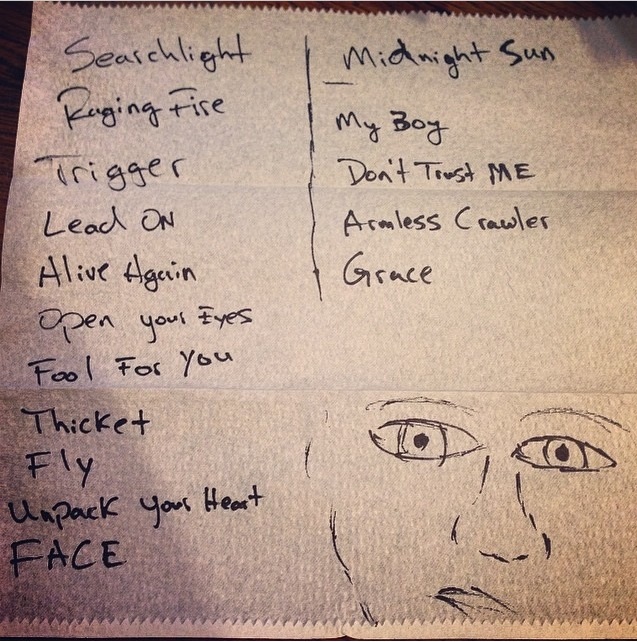 Searchlight
Raging Fire
Trigger
Lead ON
Alive Again
Open your Eyes
Fool For You
Thicket
Fly
Unpack your Heart
FACE
Midnight Sun
My Boy
Don't Trust ME
Armless Crawler
Grace